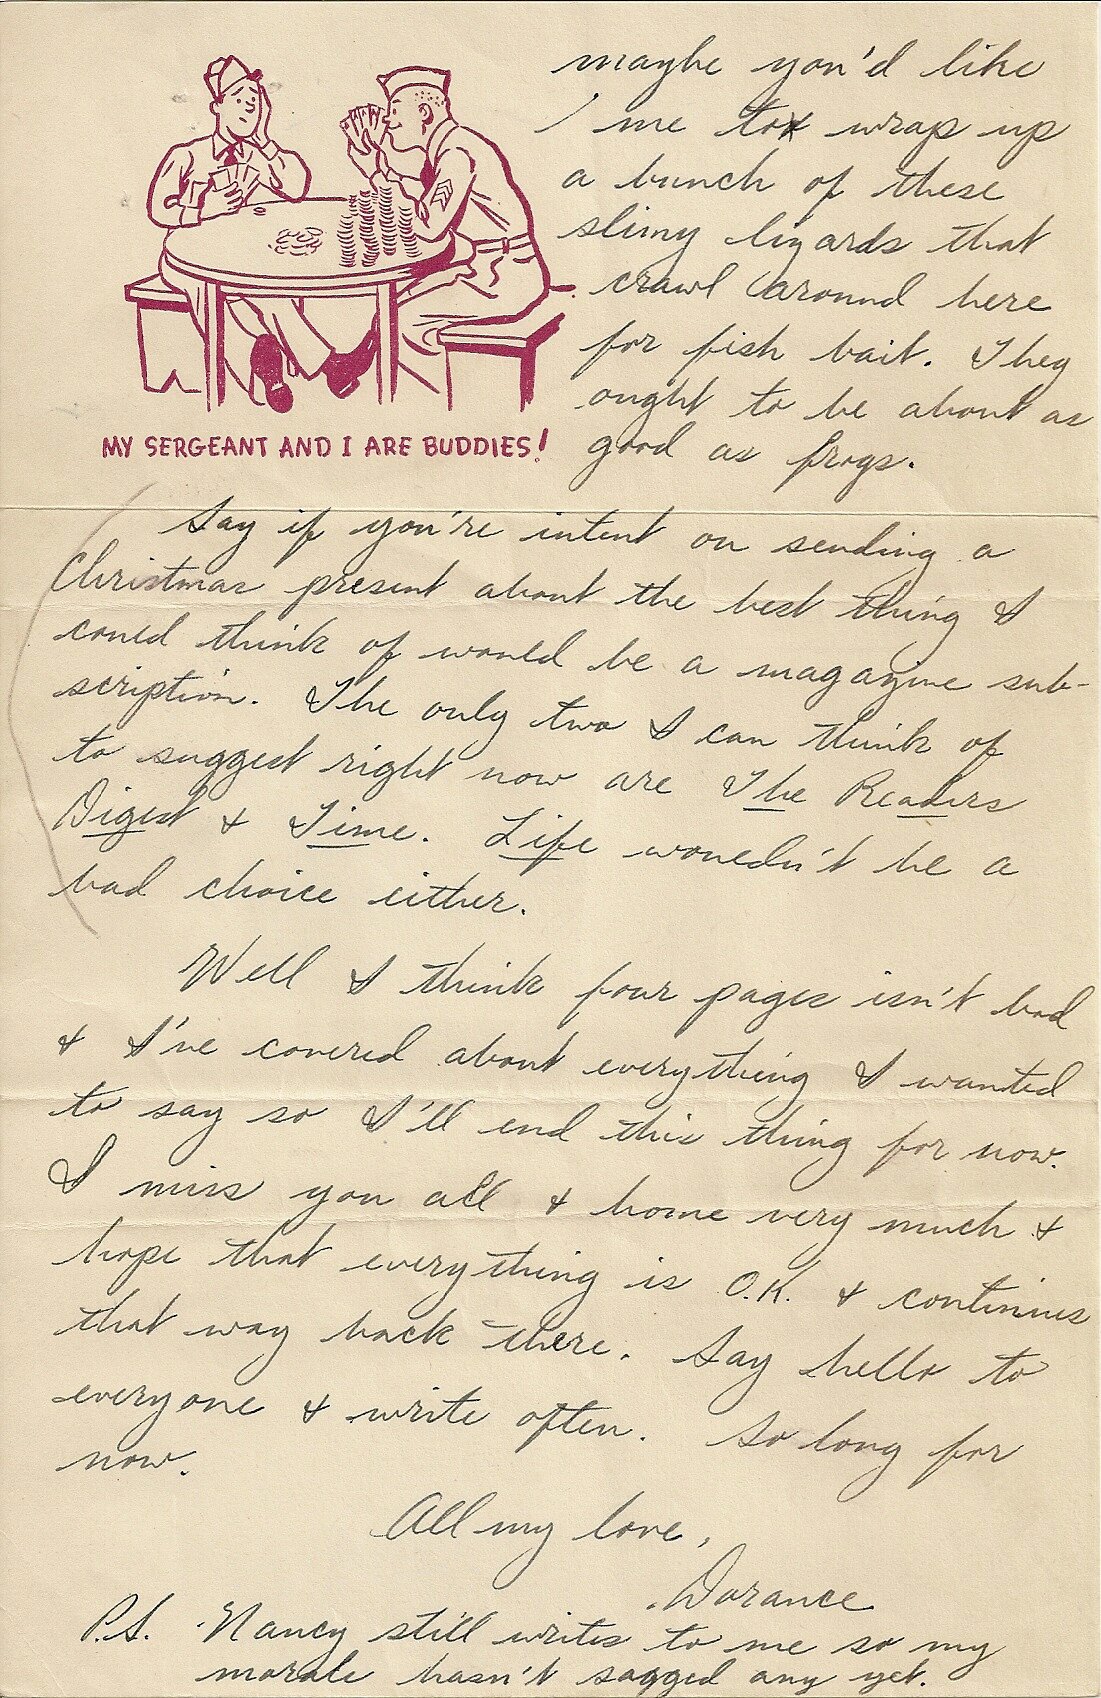 maybe you'd like
me to wrap up
a bunch of these
slimy lizards that
crawl around here
for fish bait. They
ought to be about as
good as frogs.
MY SERGEANT AND I ARE BUDDIES!
Say if you're intent on sending a
Christmas present about the best thing I
could think of would be a magazine sub-
scription. The only two I can think of
to suggest right now are The Readers
Digest & Time. Life wouldn't be a
bad choice either.
Well I think four pages isn't bad
& I've covered about everything I wanted
to say so I'll end this thing for now.
I miss you all & home very much &
hope that everything is O.K. & continues
that way back there. Say hello to
everyone & write often. So long for
now.
All my love,
Dorance
P.S. Nancy still writes to me so my
morale hasn't sagged any yet.